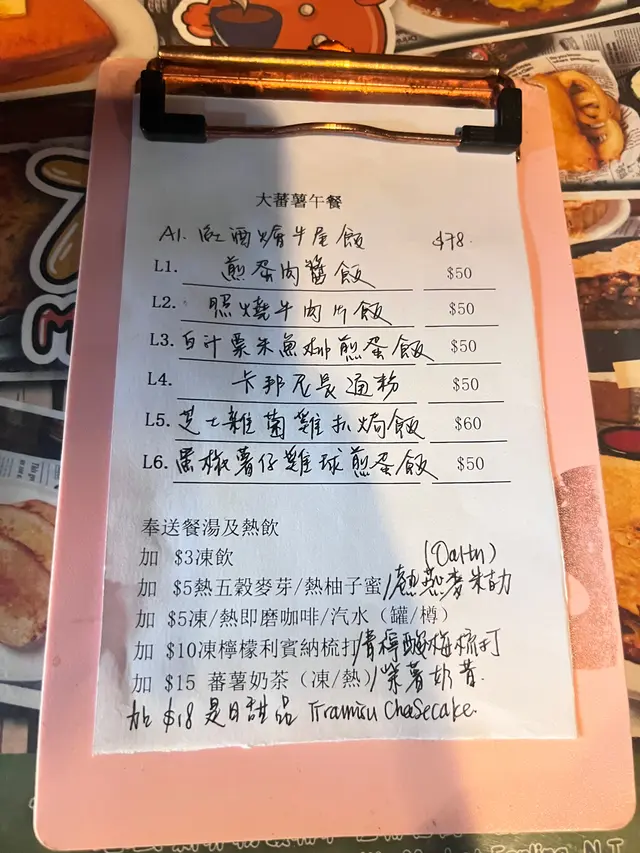 大蕃薯午餐
A1. 紅酒燴牛尾飯 $78.
L1. 煎蛋肉醬飯 $50
L2. 照燒牛肉片飯 $50
L3. 白汁粟米魚柳煎蛋飯 $50
L4. 卡邦尼長通粉 $50
L5. 芝士雜菌雞扒焗飯 $60
L6. 黑椒薯仔雞球煎蛋飯 $50
奉送餐湯及熱飲
加 $3凍飲 (Oatly)
加 $5熱五穀麥芽/熱柚子蜜/熱燕麥朱古力
加 $5凍/熱即磨咖啡/汽水（罐/樽）
加 $10凍檸檬利賓納梳打/青檸酸梅梳打
加 $15 蕃薯奶茶（凍/熱）/紫薯奶昔.
加 $18 是日甜品 Tiramisu Cheesecake.